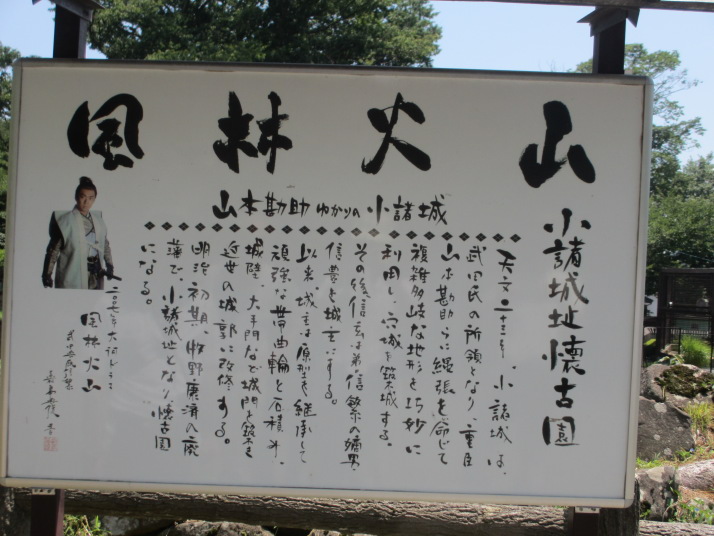 風林火山
山本勘助ゆかりの小諸城
小諸城址懐古園
天文二十三年、小諸城は、
武田氏の所領となり、重臣
山本勘助らに縄張を命じて
複雑多岐な地形を巧妙に
利用し、穴城を築城する。
その後、信玄は弟信繁の嫡男
信豊を城主にする。
以来、城主は原型を継承して
頑強な帯曲輪と石積み、
城陸、大手門など城門を築き
近世の城郭に改修する。
明治初期、牧野康済の廃
藩で、小諸城址となり懐古園
になる。
二〇〇七年大河ドラマ
風林火山